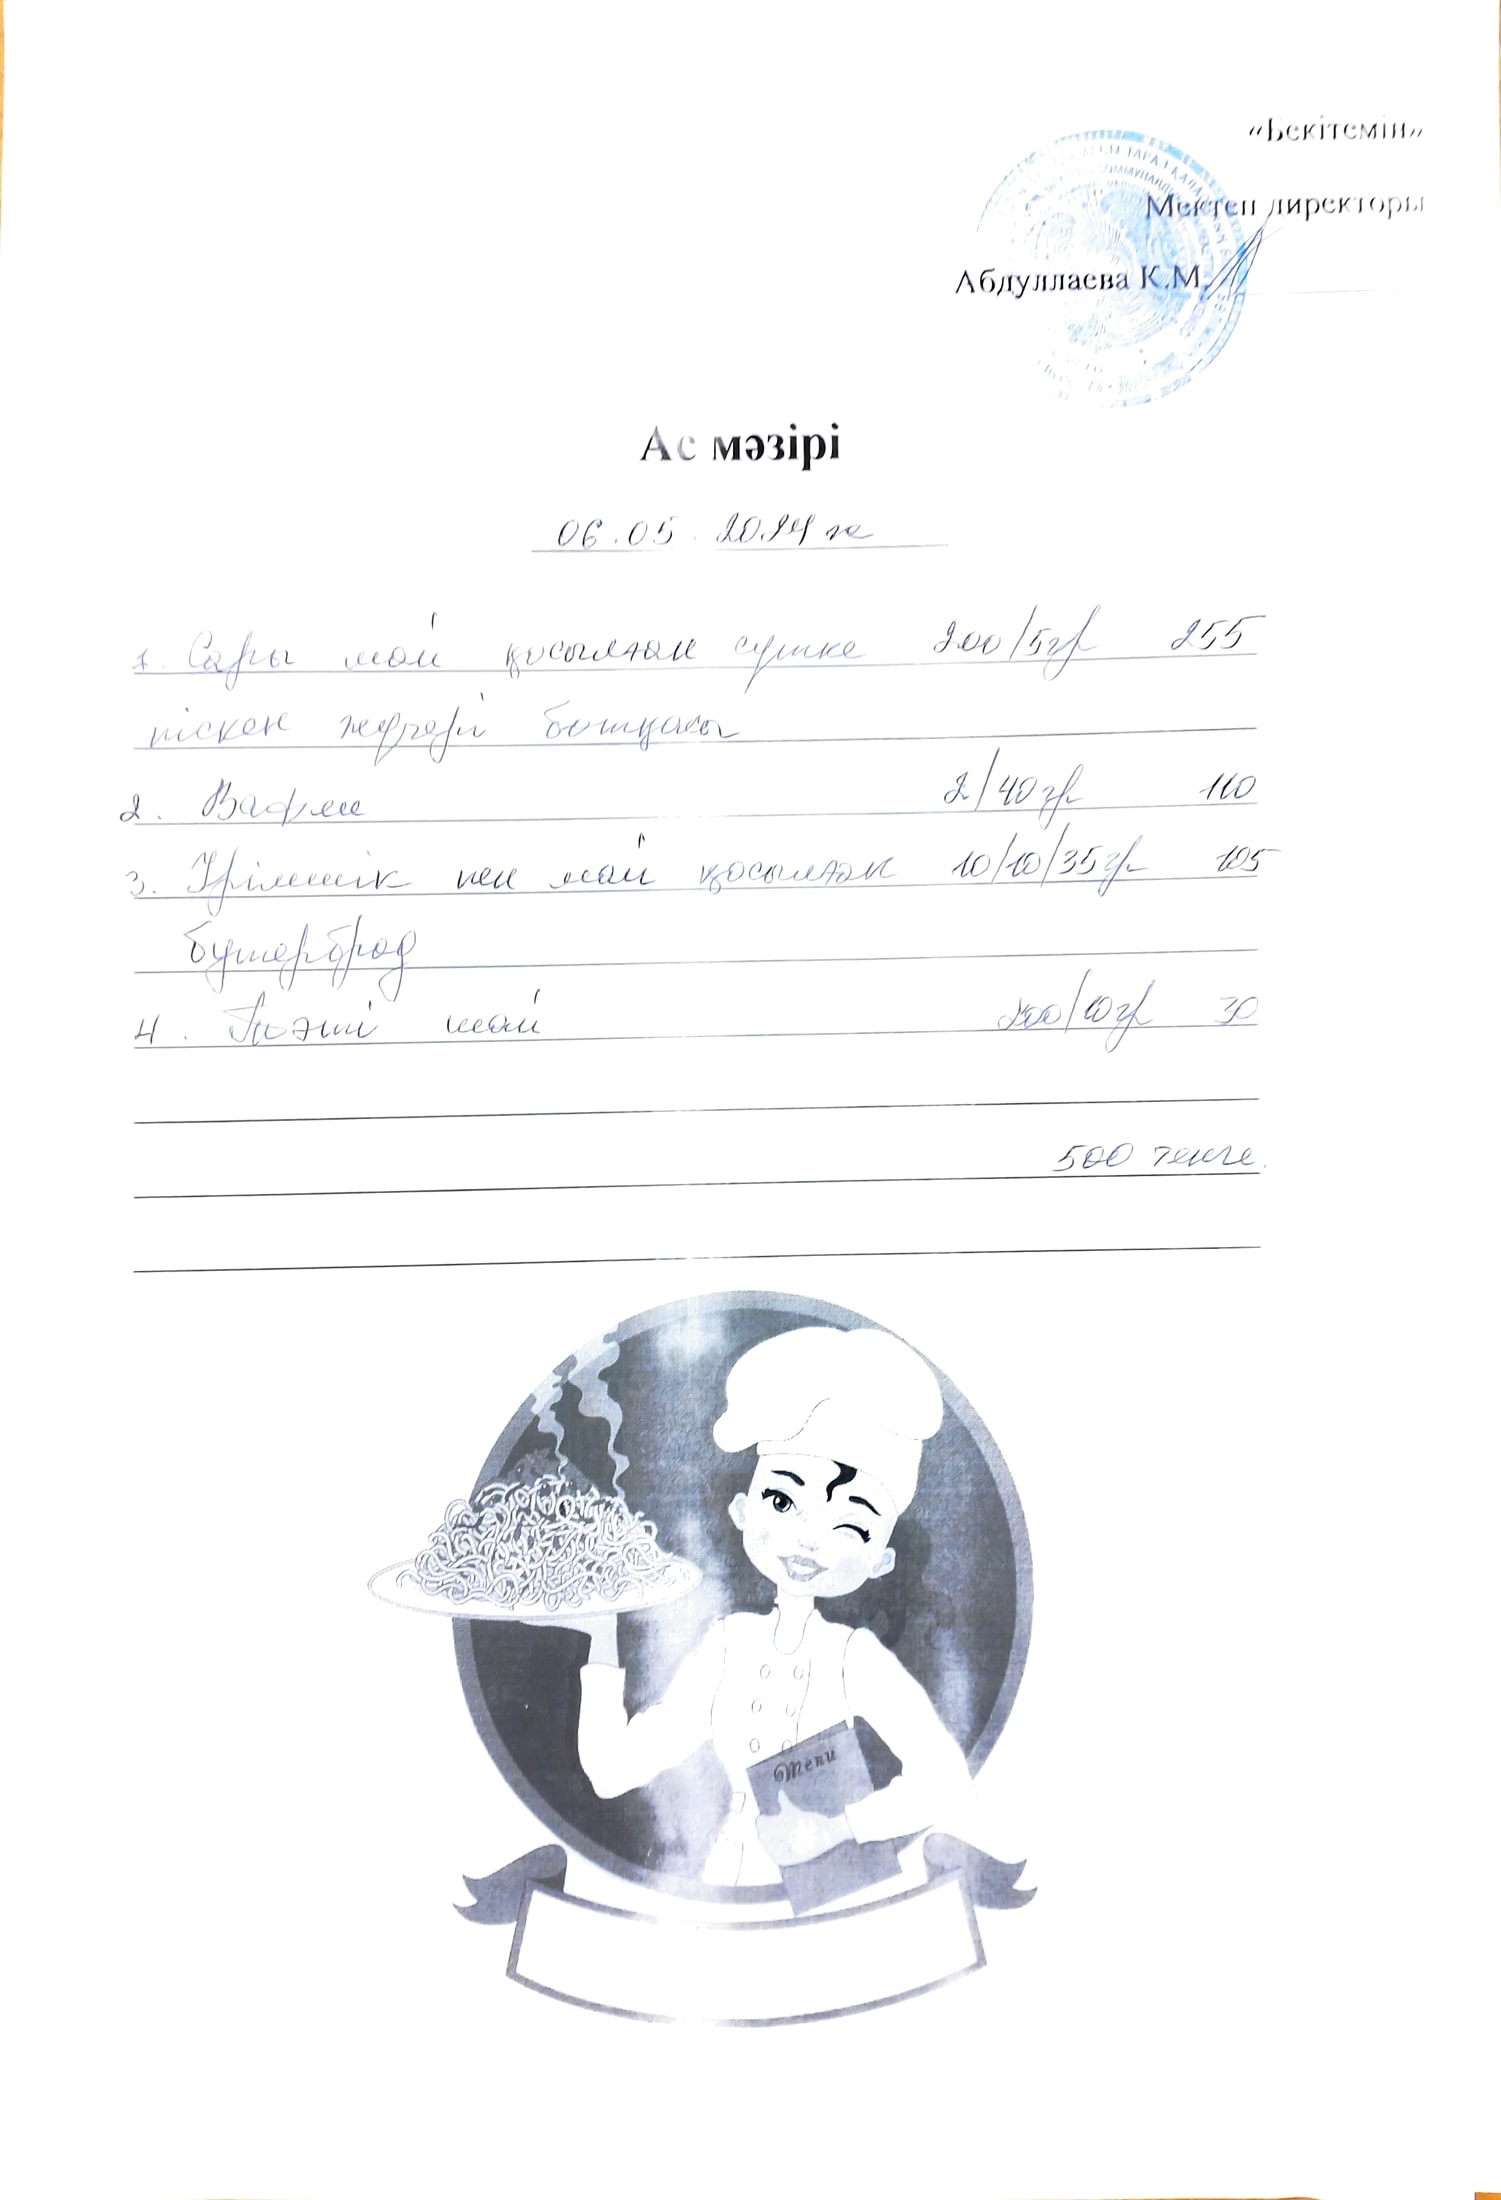 «Бекітемін»
Мектеп директоры
Абдуллаева К.М.
Ас мәзірі
06.05.2024 ж
1. Сары май қосылған сүтке 200/5гр 255
піскен жүгері ботқасы
2. Вафли 2/40гр 110
3. Ірімшік пен май қосылған 10/10/35гр 105
бутерброд
4. Тәтті шай 200/10гр 30
500 тенге.
Menu